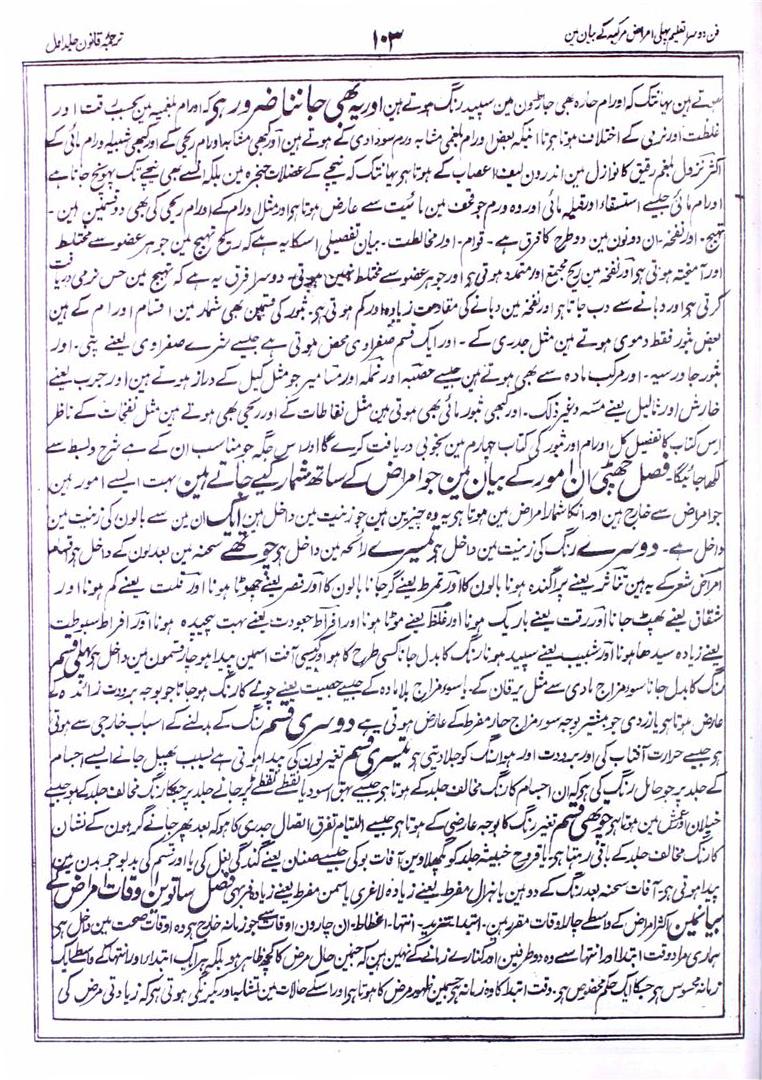 فن دوسرا تعلیم پہلی امراض مرکبہ کے بیان مین
۱۰۳
ترجمۂ قانون جلد اول
ہوتے ہین یہانتک کہ اورام حارہ بھی جاڑون مین سپید رنگ ہوتے ہین اور یہ بھی جاننا ضرور ہی کہ اورام بلغمیہ مین بحسب رقت اور
غلظت اور نرمی کے اختلاف ہوتا ہی اسلیے کہ بعض ورام بلغمی مشابہ ورم سوداوی کے ہوتے ہین اور کبھی مشابہ اورام ریحی کے اور کبھی شبیہ ورام مائی کے
اکثر نزول بلغم رقیق کا نوازل مین اندرون لیف اعصاب کے ہوتا ہی یہانتک کہ نیچے کے عضلات حنجرہ مین بلکہ اس سے بھی نیچے تک پہونچ جاتا ہے
اورام مائی جیسے استسقا اور قیلہ مائی اور وہ ورم جو قحف مین مائیت سے عارض ہوتا ہی اور مثل اورام کے اورام ریحی کی بھی دو قسمین ہین۔
تہبج۔ اور نفخہ۔ ان دونون مین دو طرح کا فرق ہے۔ قوام۔ اور مخالطت۔ بیان تفصیلی اسکا یہ ہے کہ ریح تہبج مین جوہر عضو سے مختلط
اور آمیختہ ہوتی ہی اور نفخہ مین ریح مجتمع اور متمدد ہوتی ہی اور جوہر عضو سے مختلط نہین ہوتی۔ دوسرا فرق یہ ہے کہ تہبج مین حس نرمی دریافت
کرتی ہی اور دبانے سے دب جاتا ہی اور نفخہ مین دبانے کی مقاومت زیادہ اور کم ہوتی ہی۔ بثور کی قسمین بھی شمار مین اقسام اورام کے ہین
بعض بثور فقط دموی ہوتے ہین مثل جدری کے۔ اور ایک قسم صفراوی محض ہوتی ہے جیسے شرے صفراوی یعنے پتی۔ اور
بثور جاورسیہ۔ اور مرکب مادہ سے بھی ہوتے ہین جیسے حصبہ اور نملہ اور مسامیر جو مثل کیل کے دراز ہوتے ہین اور جرب یعنے
خارش اور ثآلیل یعنے مسّہ وغیر ذلک۔ اور کبھی بثور مائی بھی ہوتی ہین مثل نفاطات کے اور ریحی بھی ہوتے ہین مثل نفاخات کے ناظر
اس کتاب کا تفصیل کل اورام اور بثور کی کتاب چہارم مین بخوبی دریافت کرے گا اور اس جگہ جو مناسب ان کے ہے شرح و بسط سے
لکھا جائیگا۔ فصل چھٹی ان امور کے بیان مین جو امراض کے ساتھ شمار کیے جاتے ہین بہت ایسے امور ہین
جو امراض سے خارج ہین اور انکا شمار امراض مین ہوتا ہی یہ وہ چیزین ہین جو زینت مین داخل ہین ایک ان مین سے بالون کی زینت مین
داخل ہے۔ دوسرے رنگ کی زینت مین داخل ہی تیسرے رائحہ مین داخل ہی چوتھے سحنہ مین بعد لون کے داخل ہی
امراض شعر کے یہ ہین تناثر یعنے پراگندہ ہونا بالون کا اور تمرط یعنے گر جانا بالون کا اور قصر یعنے چھوٹا ہونا اور قلت یعنے کم ہونا اور
شقاق یعنے پھٹ جانا اور رقت یعنے باریک ہونا اور غلظ یعنے موٹا ہونا اور افراط جعودت یعنے بہت پیچیدہ ہونا اور افراط سبوطت
یعنے زیادہ سیدھا ہونا اور شیب یعنے سپید ہونا رنگ کا بدل جانا کسی طرح کا ہو اور جیسی آفت اسمین پیدا ہو چار قسمون مین داخل ہی پہلی قسم
رنگ کا بدل جانا سوء مزاج مادی سے مثل یرقان کے۔ یا سوء مزاج بلا مادہ کے جیسے جصیت یعنے چونے کا رنگ ہو جاتا جو بوجہ برودت زائدہ کے
عارض ہوتا ہی یا زردی جو بغیر بوجہ سوء مزاج حار مفرط کے عارض ہوتی ہے دوسری قسم رنگ کے بدلنے کے اسباب خارجی سے ہوتی
ہی جیسے حرارت آفتاب کی اور برودت اور ہوا رنگ کو جلا دیتی ہی تیسری قسم تغیر لون کی پیدا ہوتی ہے بسبب پھیل جانے ایسے اجسام
کے جلد پر جو حائل رنگ کی ہو کہ ان اجسام کا رنگ مخالف جلد کے ہوتا ہی جیسے بہق اسود یا نقطے نقطے پڑ جانے جلد پر جنکا رنگ مخالف جلد کے ہو جیسے
خیلان اور نمش مین ہوتا ہی چوتھی قسم تغیر رنگ کا بوجہ عارضی کے ہوتا ہی جیسے التیام تفرق اتصال جدری کا ہو کہ بعد بھر جانے گڑھون کے نشان
کا رنگ مخالف جلد کے باقی رہتا ہی یا قروح خبیثہ جلد کو آفات بو کی جیسے صنان یعنے گندگی بغل کی یا اور قسم کی بدبو جو بدن مین
پیدا ہوتی ہی۔ آفات سحنہ بعد رنگ کے دو ہین یا ہزال مفرط یعنے زیادہ لاغری یا سمن مفرط یعنے زیادہ فربہی فصل ساتوین اوقات امراض کے
بیان مین اکثر امراض کے واسطے چار اوقات مقرر ہین۔ ابتدا۔ تزید۔ انتہا۔ انحطاط۔ ان چارون اوقات سے جو زمانہ خارج ہی وہ اوقات صحت مین داخل ہی
ہماری مراد وقت ابتدا اور انتہا سے وہ دو طرفین اور کنارے زمانے کے نہین ہین کہ جنمین حال مرض کا کچھ ظاہر ہو بلکہ ہر ایک ابتدا اور انتہا کے واسطے ایک
زمانہ محسوس ہی جسکا ایک حکم مخصوص ہی۔ وقت ابتدا کا وہ زمانہ ہی جسمین ظہور مرض کا ہوتا ہی اور اسکے حالات مین تشابہ اور یکرنگی ہوتی ہی کہ زیادتی مرض کی